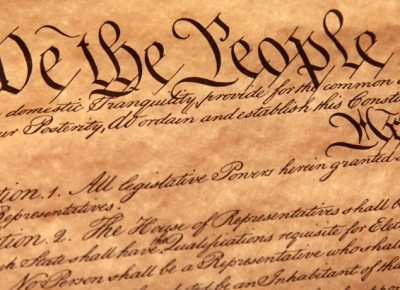 We the People
domestic Tranquility, provide for the common
our Posterity, do ordain and establish this Consti
Art
ction. 1. All legislative Powers herein granted
Representatives.
ction. 2. The House of Representatives shall be
ach State shall have the Qualifications requisite for Elec
No Person shall be a Representative who shall
be an Inhabitant of that